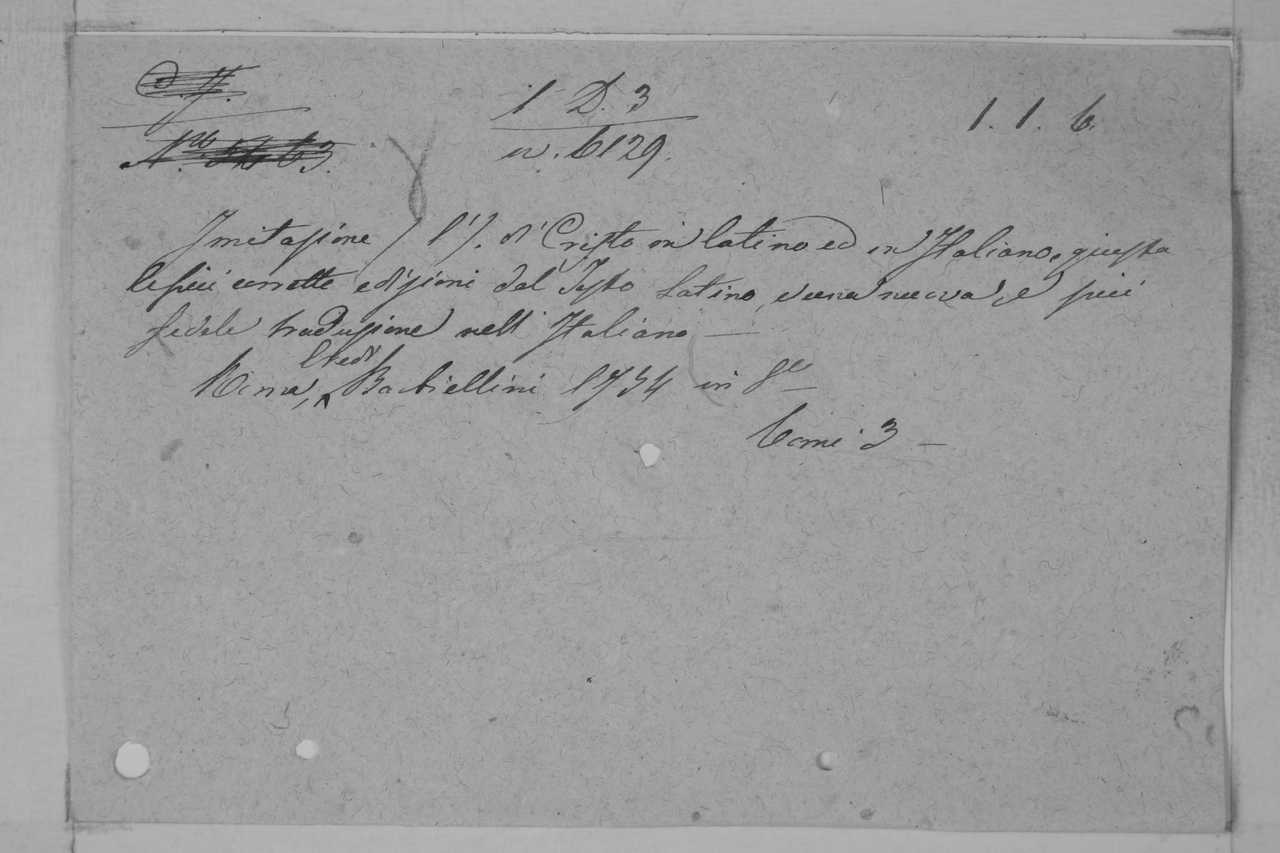 1 D. 3
n. 6129.
1. 1. 6.
Imitazione (l') di Cristo in latino ed in Italiano, giusta
le più corrette edizioni del Testo Latino, e una nuova, e più
fedele traduzione nell' Italiano —
Eredi
Roma, Barbiellini 1754 in 8º
Tomi 3 —